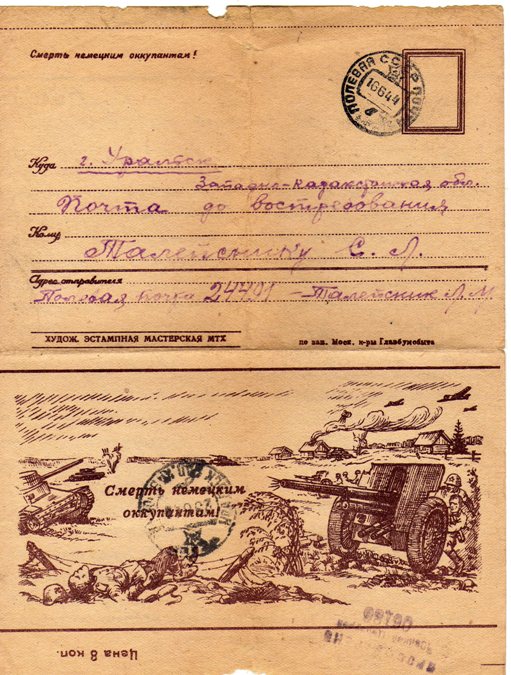 Смерть немецким оккупантам!
ПОЛЕВАЯ ПОЧТА
16644
Куда г. Уральск
Западно-Казахстанская обл.
Почта до востребования
Кому Талейснику С. Л.
Адрес отправителя
Полевая почта 24401 – Талейсник Л. М
ХУДОЖ. ЭСТАМПНАЯ МАСТЕРСКАЯ МТХ
по зак. Моск. к-ры Главбумсбыта
Смерть немецким
оккупантам!
Цена 8 коп.